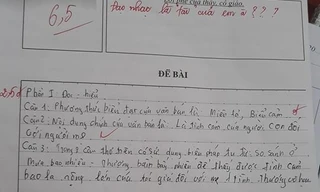 6,5
Lời phê của thầy, cô giáo
tạo nhạo lời tài của em à ? ? ?
ĐỀ BÀI
2,5đ Phần I Đọc - hiểu
Câu 1: Phương thức biểu đạt của văn bản là: Miêu tả, Biểu cảm
Câu 2: Nội dung chính của văn bản là: Là tình cảm của người con đối
với người mẹ
Câu 3: Trong 2 câu thơ trên có sử dụng biện pháp tu từ: So sánh ở
nhiêu bao nhiêu - thương bầm bấy nhiêu để thấy được tình cảm
bao la rộng lớn của tác giả đối với mẹ